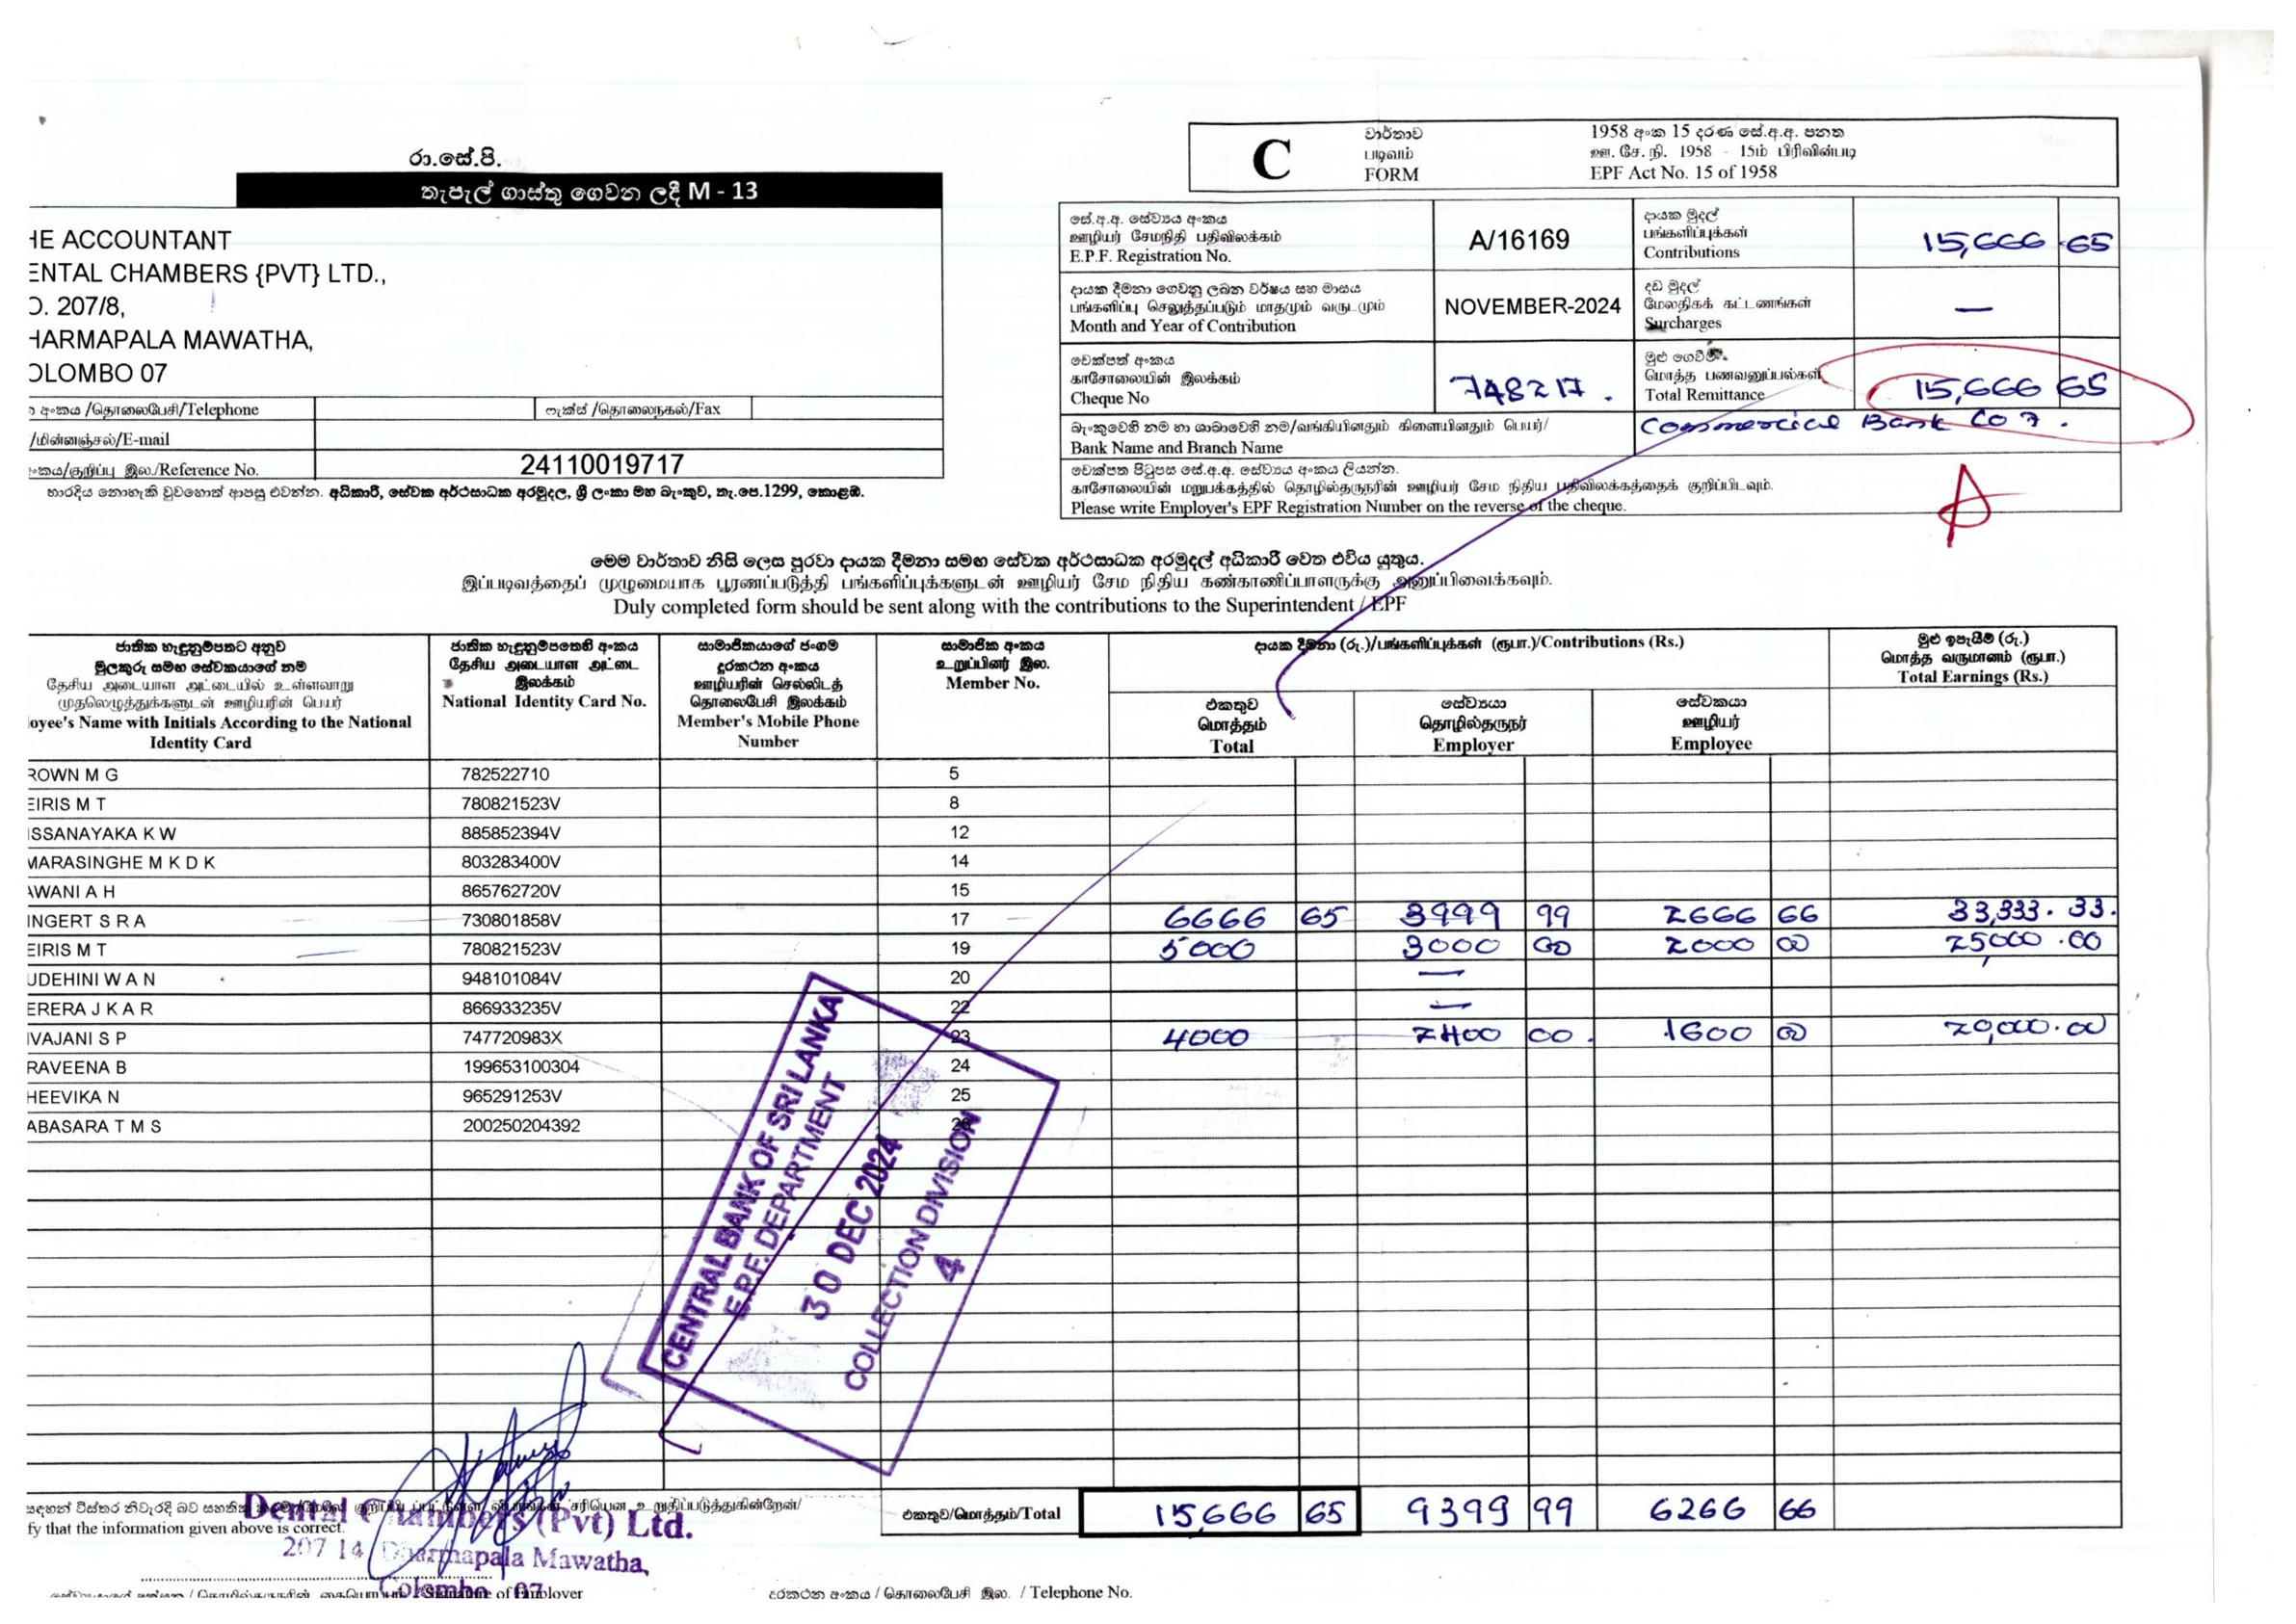 රා.සේ.පි.
තැපැල් ගාස්තු ගෙවන ලදී M - 13
HE ACCOUNTANT
ENTAL CHAMBERS {PVT} LTD.,
O. 207/8,
HARMAPALA MAWATHA,
OLOMBO 07
අංකය /தொலைபேசி/Telephone
ෆැක්ස් /தொலைநகல்/Fax
/மின்னஞ்சல்/E-mail
අංකය/குறிப்பு இல./Reference No. 24110019717
භාරදිය නොහැකි වුවහොත් ආපසු එවන්න. අධිකාරී, සේවක අර්ථසාධක අරමුදල, ශ්‍රී ලංකා මහ බැංකුව, තැ.පෙ.1299, කොළඹ.
C
වාර්තාව
படிவம்
FORM
1958 අංක 15 දරණ සේ.අ.අ. පනත
ஊ. சே. நி. 1958 - 15ம் பிரிவின்படி
EPF Act No. 15 of 1958
සේ.අ.අ. සේව්‍යය අංකය
ஊழியர் சேமநிதி பதிவிலக்கம்
E.P.F. Registration No.
A/16169
දායක මුදල්
பங்களிப்புக்கள்
Contributions
15,666 .65
දායක දීමනා ගෙවනු ලබන වර්ෂය සහ මාසය
பங்களிப்பு செலுத்தப்படும் மாதமும் வருடமும்
Month and Year of Contribution
NOVEMBER-2024
දඩ මුදල්
மேலதிகக் கட்டணங்கள்
Surcharges
—
චෙක්පත් අංකය
காசோலையின் இலக்கம்
Cheque No
748217 .
මුළු ගෙවීම්
மொத்த பணவனுப்பல்கள்
Total Remittance
15,666 65
බැංකුවෙහි නම හා ශාඛාවෙහි නම/வங்கியினதும் கிளையினதும் பெயர்/
Bank Name and Branch Name
Commercial Bank CO 7 .
චෙක්පත පිටුපස සේ.අ.අ. සේව්‍යය අංකය ලියන්න.
காசோலையின் மறுபக்கத்தில் தொழில்தருநரின் ஊழியர் சேம நிதிய பதிவிலக்கத்தைக் குறிப்பிடவும்.
Please write Employer's EPF Registration Number on the reverse of the cheque.
A
මෙම වාර්තාව නිසි ලෙස පුරවා දායක දීමනා සමඟ සේවක අර්ථසාධක අරමුදල් අධිකාරී වෙත එවිය යුතුය.
இப்படிவத்தைப் முழுமையாக பூரணப்படுத்தி பங்களிப்புக்களுடன் ஊழியர் சேம நிதிய கண்காணிப்பாளருக்கு அனுப்பிவைக்கவும்.
Duly completed form should be sent along with the contributions to the Superintendent / EPF
ජාතික හැඳුනුම්පතට අනුව
මුලකුරු සමඟ සේවකයාගේ නම
தேசிய அடையாள அட்டையில் உள்ளவாறு
முதலெழுத்துக்களுடன் ஊழியரின் பெயர்
oyee's Name with Initials According to the National
Identity Card
ජාතික හැඳුනුම්පතෙහි අංකය
தேசிய அடையாள அட்டை
இலக்கம்
National Identity Card No.
සාමාජිකයාගේ ජංගම
දුරකථන අංකය
ஊழியரின் செல்லிடத்
தொலைபேசி இலக்கம்
Member's Mobile Phone
Number
සාමාජික අංකය
உறுப்பினர் இல.
Member No.
දායක දීමනා (රු.)/பங்களிப்புக்கள் (ரூபா.)/Contributions (Rs.)
එකතුව
மொத்தம்
Total
සේව්‍යයා
தொழில்தருநர்
Employer
සේවකයා
ஊழியர்
Employee
මුළු ඉපැයීම් (රු.)
மொத்த வருமானம் (ரூபா.)
Total Earnings (Rs.)
ROWN M G 782522710 5
EIRIS M T 780821523V 8
ISSANAYAKA K W 885852394V 12
MARASINGHE M K D K 803283400V 14
AWANI A H 865762720V 15
INGERT S R A 730801858V 17 6666 65 3999 99 2666 66 33,333. 33.
EIRIS M T 780821523V 19 5000 3000 00 2000 00 25000 .00
UDEHINI W A N 948101084V 20 —
ERERA J K A R 866933235V 22 —
IVAJANI S P 747720983X 23 4000 2400 00 . 1600 00 20,000.00
RAVEENA B 199653100304 24
HEEVIKA N 965291253V 25
ABASARA T M S 200250204392 26
CENTRAL BANK OF SRI LANKA
E.P.F. DEPARTMENT
30 DEC 2024
COLLECTION DIVISION
4
එකතුව/மொத்தம்/Total 15,666 65 9399 99 6266 66
සඳහන් විස්තර නිවැරදි බව සහතික சரியென உறுதிப்படுத்துகின்றேன்/
fy that the information given above is correct.
Dental Chambers (Pvt) Ltd.
207 14 Dharmapala Mawatha,
Colombo 07
Signature of Employer
දුරකථන අංකය / தொலைபேசி இல. / Telephone No.